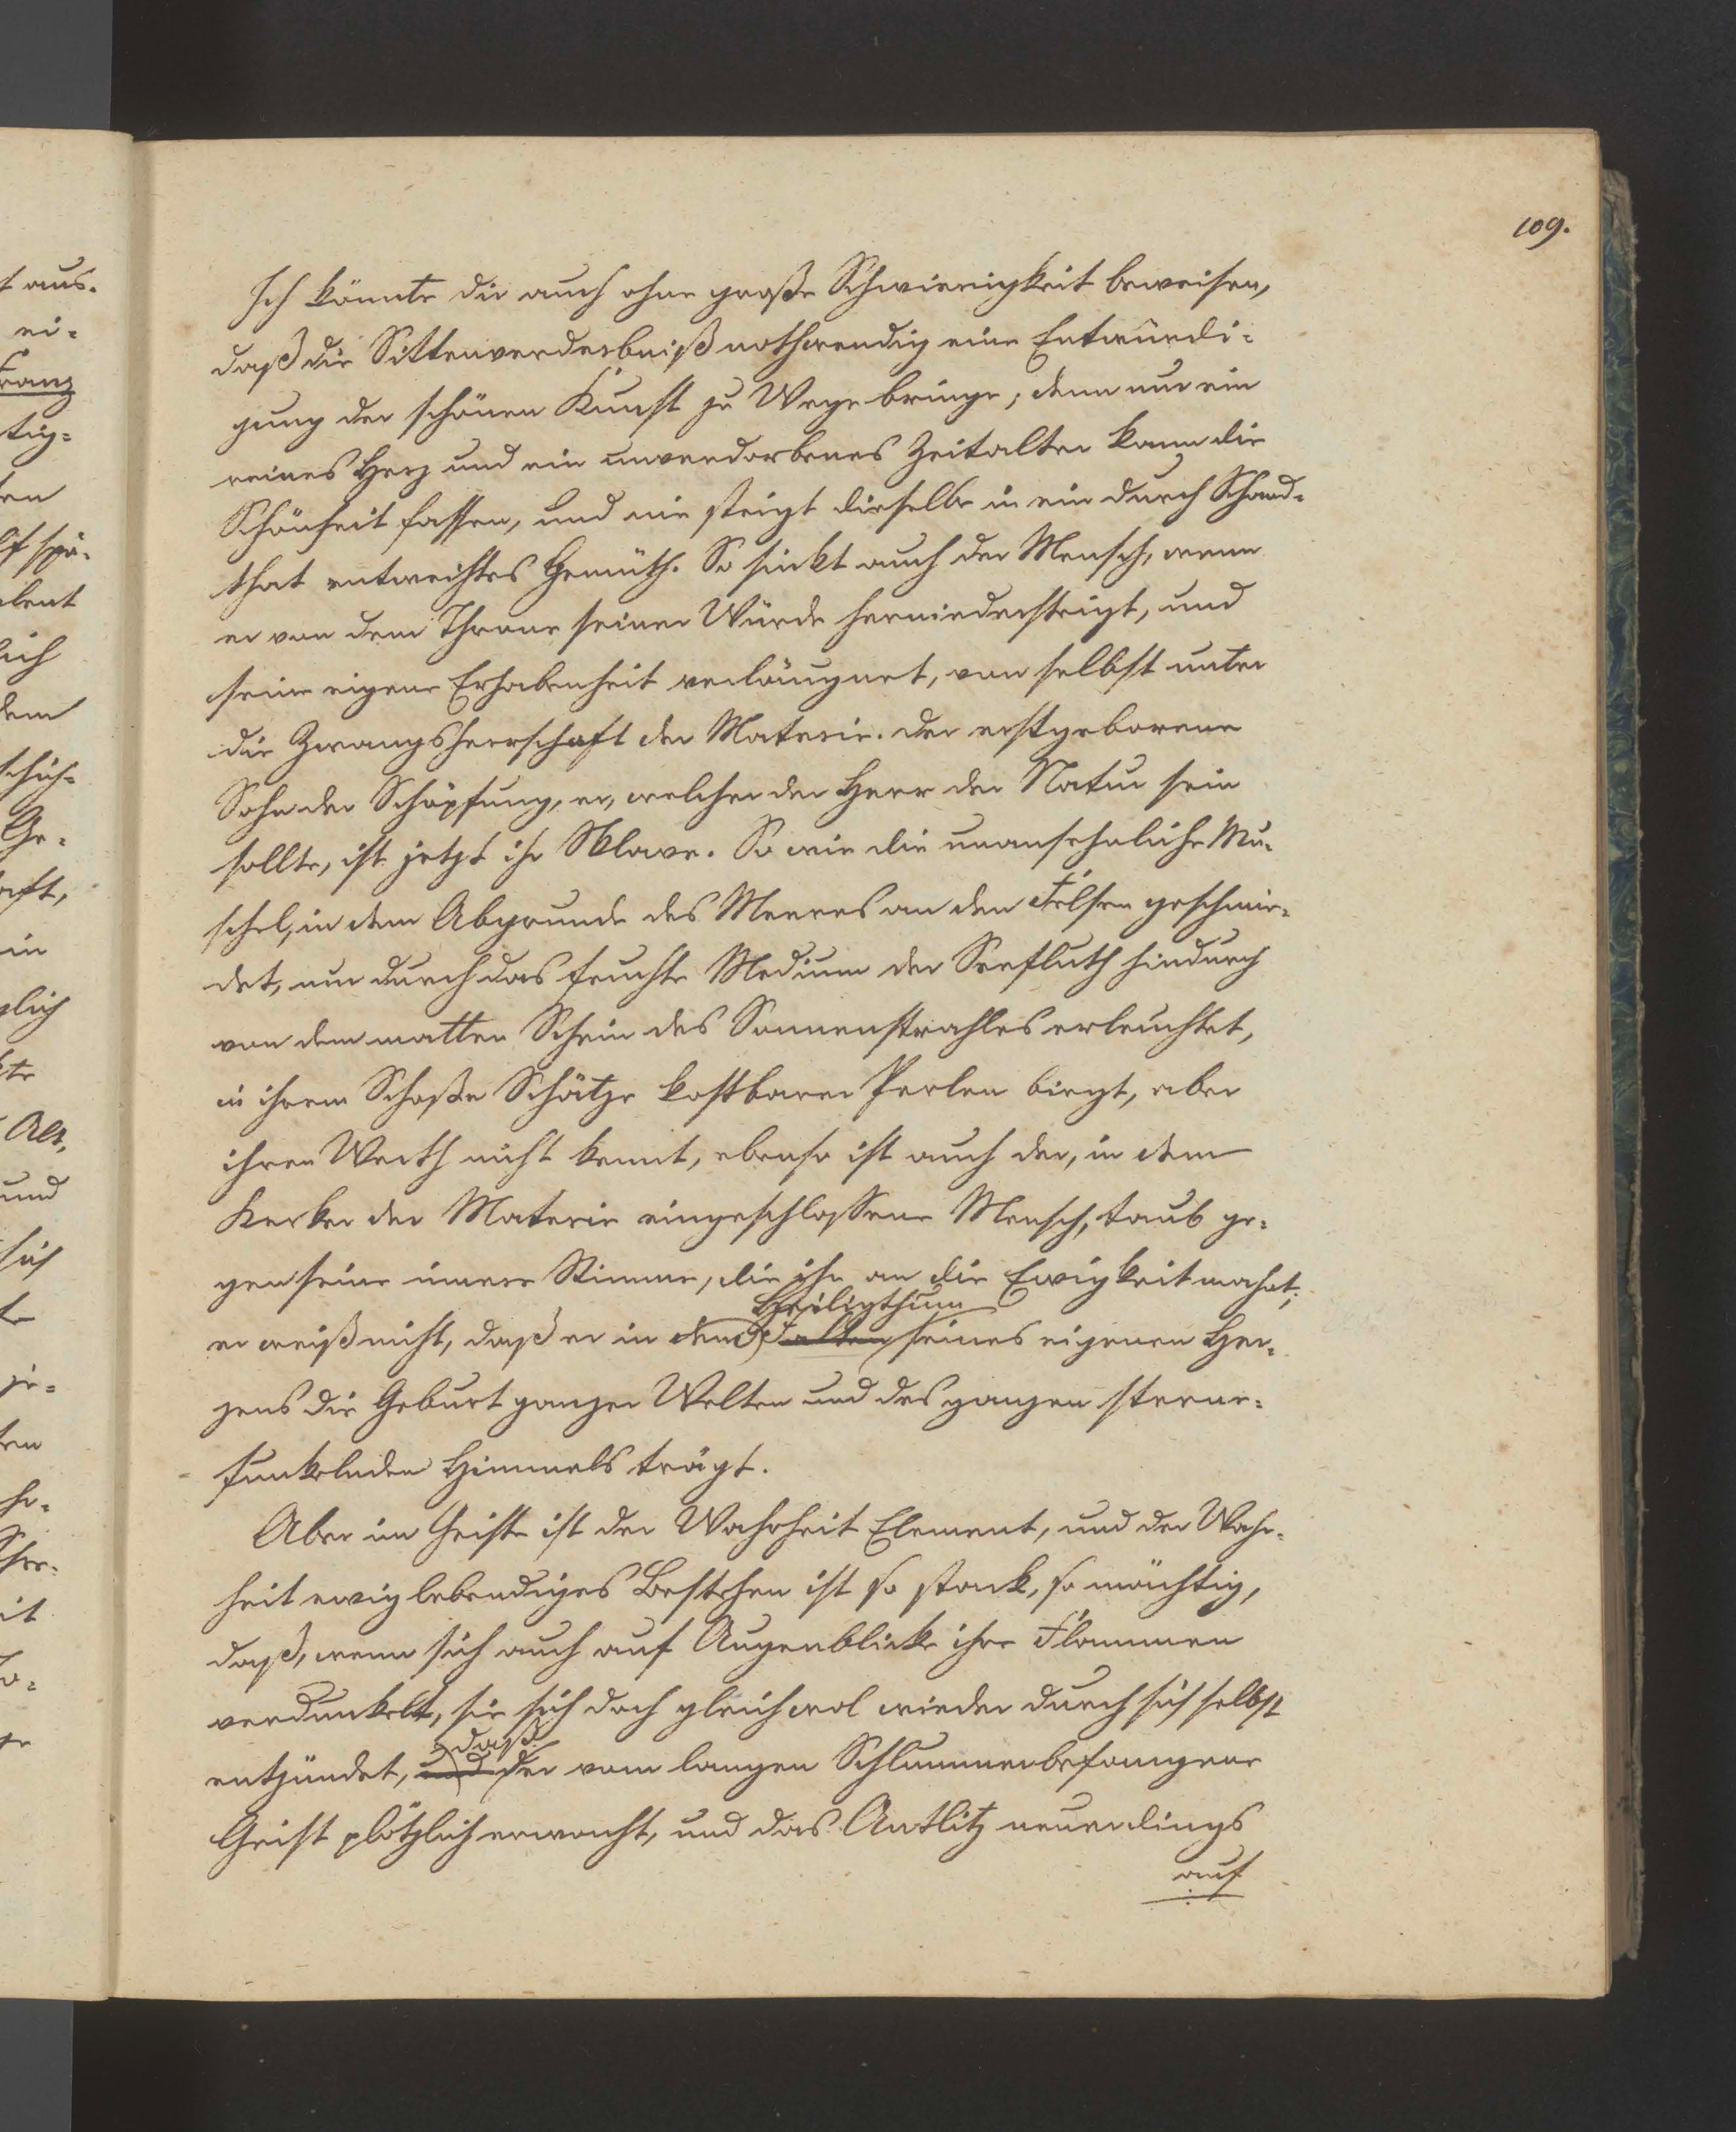 109.
Ich könnte dir auch ohne große Schwierigkeit beweisen,
daß die Sittenverderbniß nothwendig eine Entwürdi-
gung der schönen Kunst zu Wege bringe; denn nur ein
reines Herz und ein unverdorbenes Zeitalter kann die
Schönheit fassen, und nie steigt dieselbe in ein durch Schand-
that entweihtes Gemüth. So sinkt auch der Mensch, wenn
er von dem Throne seiner Würde herniedersteigt, und
seine eigene Erhabenheit verläugnet, von selbst unter
die Zwangsherrschaft der Materie. Der erstgeborene
Sohn der Schöpfung, er, welcher der Herr der Natur sein
sollte, ist jetzt ihr Sklave. So wie die unansehnliche Mu-
schel, in dem Abgrunde des Meeres an den Felsen geschmie-
det, nur durch das feuchte Medium der Seefluth hindurch
von dem matten Schein des Sonnenstrahles erleuchtet,
in ihrem Schoße Schätze kostbarer Perlen birgt, aber
ihren Werth nicht kennt, ebenso ist auch der, in dem
Kerker der Materie eingeschlossene Mensch, taub ge-
gen seine innere Stimme, die ihn an die Ewigkeit mahnt;
Heiligthum
er weiß nicht, daß er in dem Falten seines eigenen Her-
zens die Geburt ganzer Welten und des ganzen sterne-
funkelnden Himmels trägt.
Aber im Geiste ist der Wahrheit Element, und der Wahr-
heit ewig lebendiges Bestehen ist so stark, so mächtig,
daß, wenn sich auch auf Augenblicke ihre Flammen
verdunkelt, sie sich doch gleichwol wieder durch sich selbst
daß
entzündet, und der vom langen Schlummer befangene
Geist plötzlich erwacht, und das Antlitz neuerdings
auf